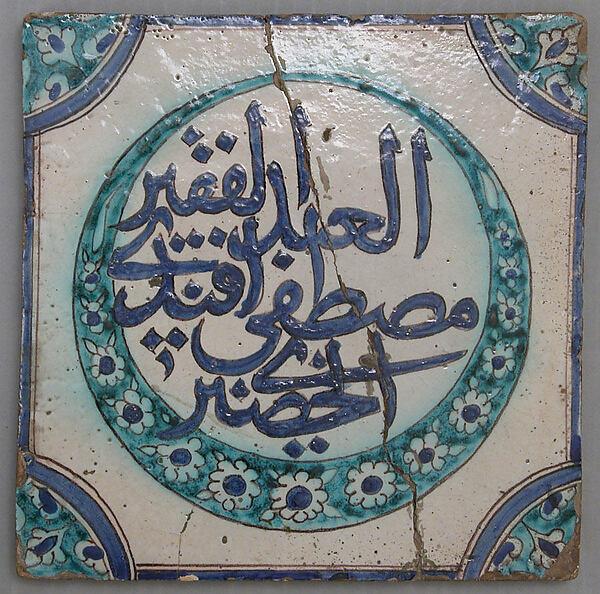 العبد الفقير
مصطفى افندي
الخضيري